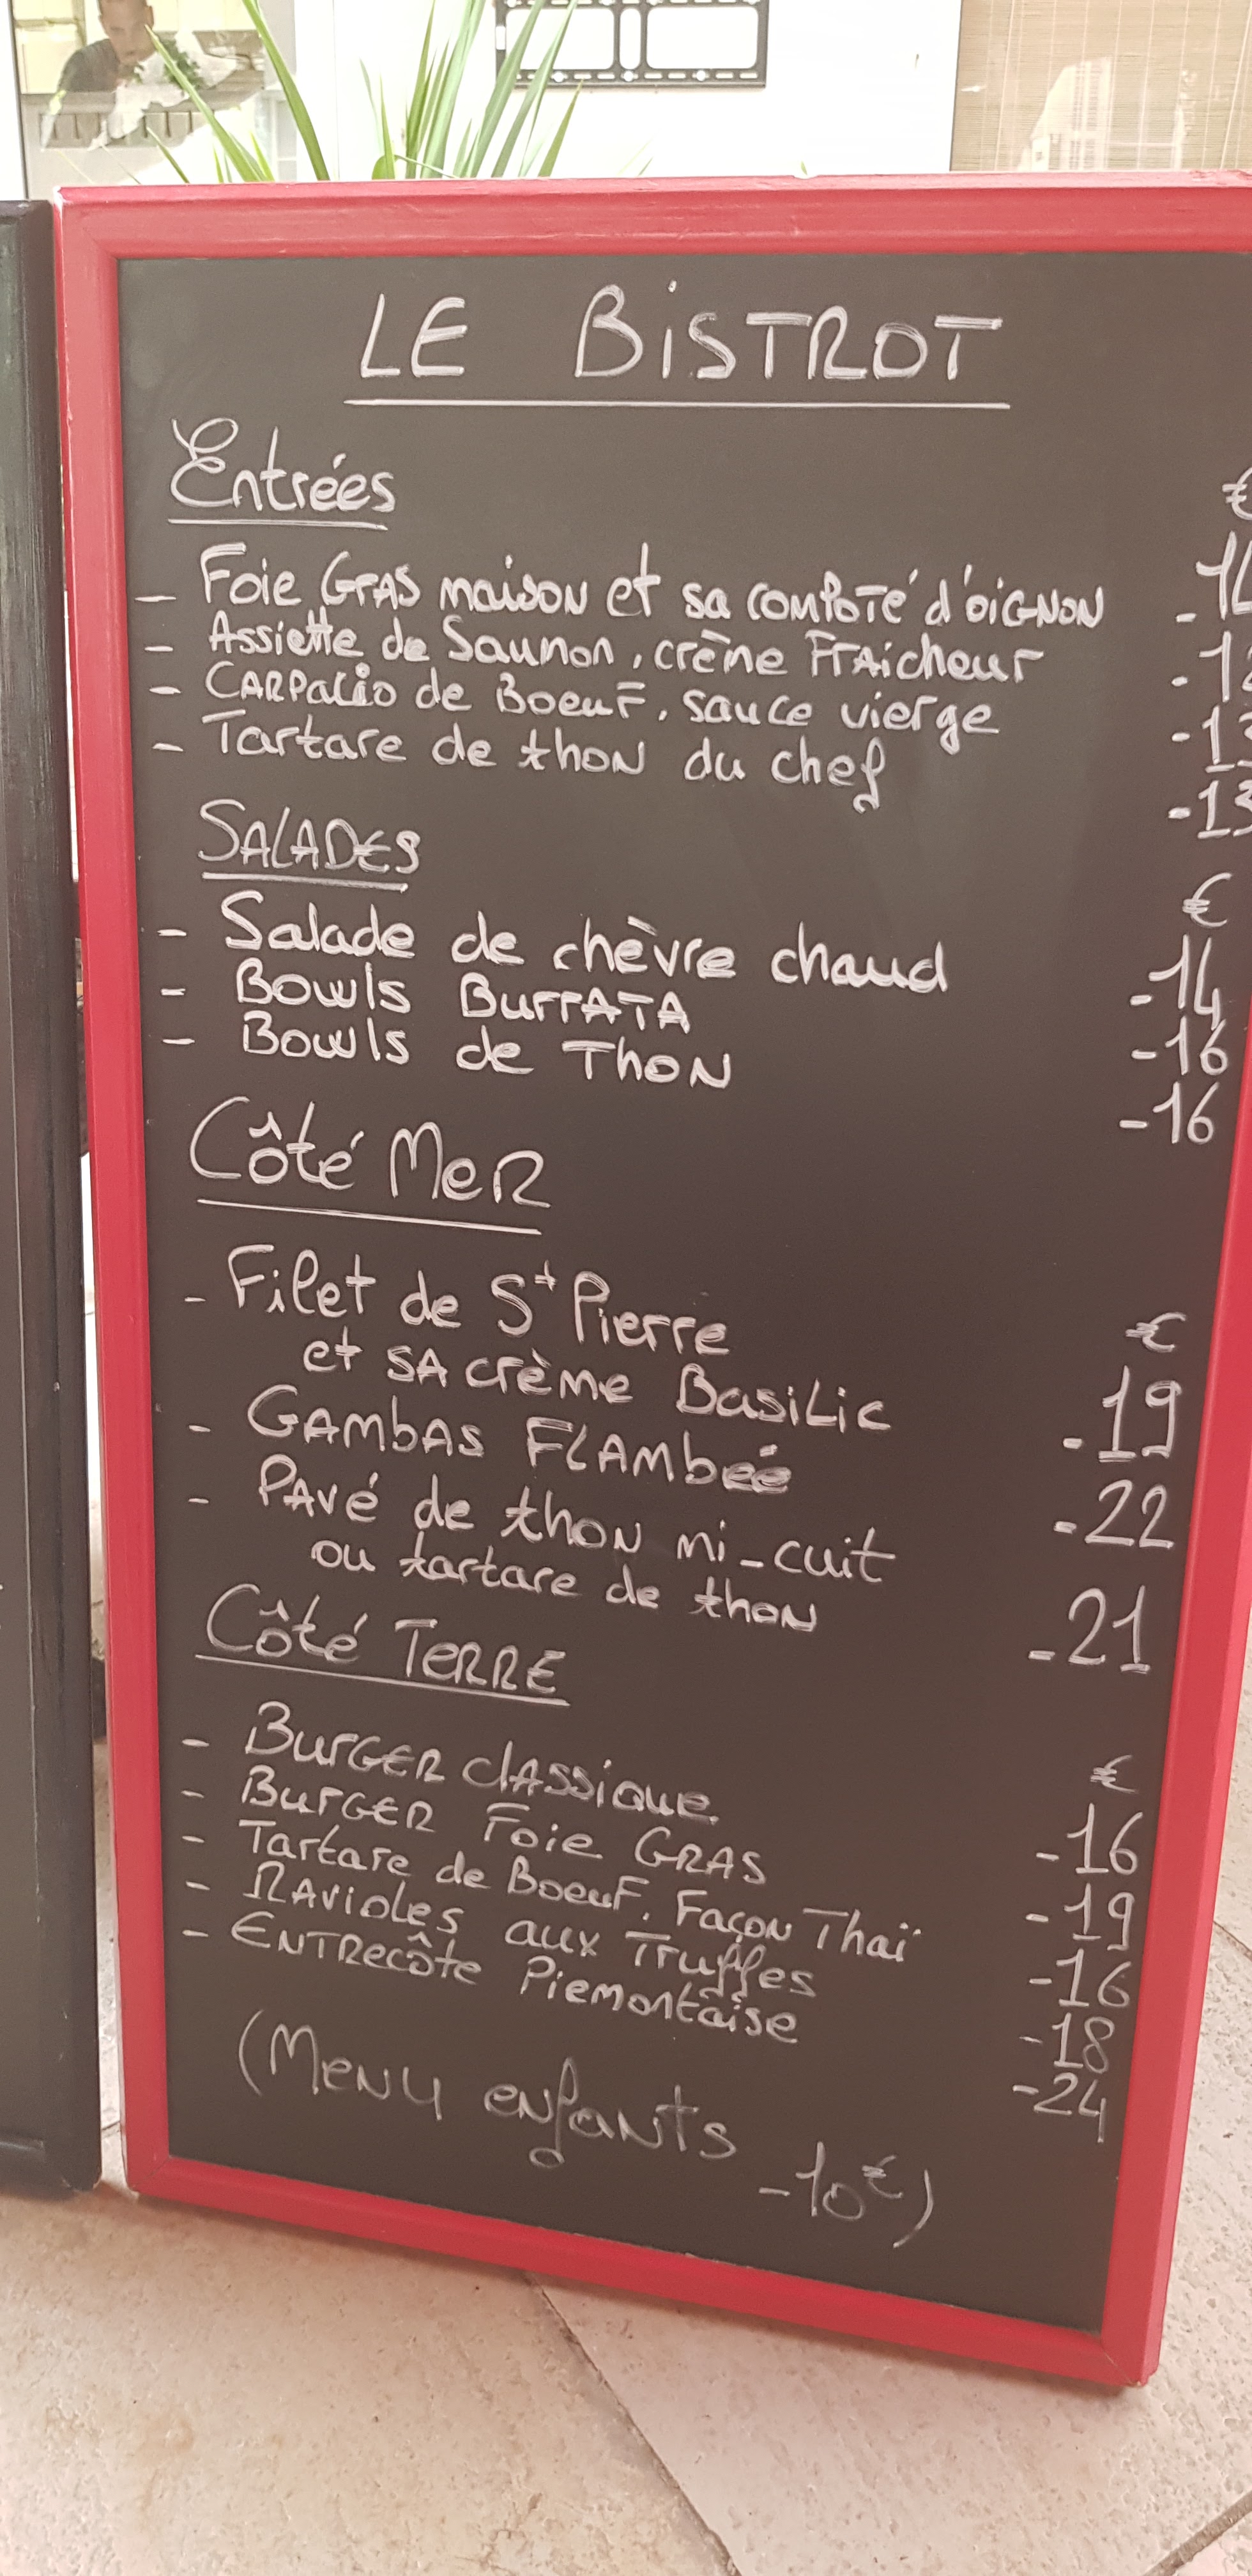 LE BiSTROT
Entrées €
- Foie GrAS maison et sa compoté d'oignon
- Assiette de Saumon, crème Fraicheur
- CARPacio de BoeuF, sauce vierge
- Tartare de thon du chef -13
SALADES €
- Salade de chèvre chaud -14
- Bowls BurrATA -16
- Bowls de Thon -16
Côté MeR
- Filet de St Pierre €
et SA crème BasiLic -19
- GAMbAS FLAMbéé -22
- PAvé de thon mi-cuit
ou tartare de thon -21
Côté TeRRE
- BurGER clASSique €
- BurGER Foie GRAS -16
- Tartare de BoeuF, Façon Thaï -19
- RAvioles aux Truffes -16
- ENTRecôte Piemontaise -18
-24
(Menu enfants -10€)